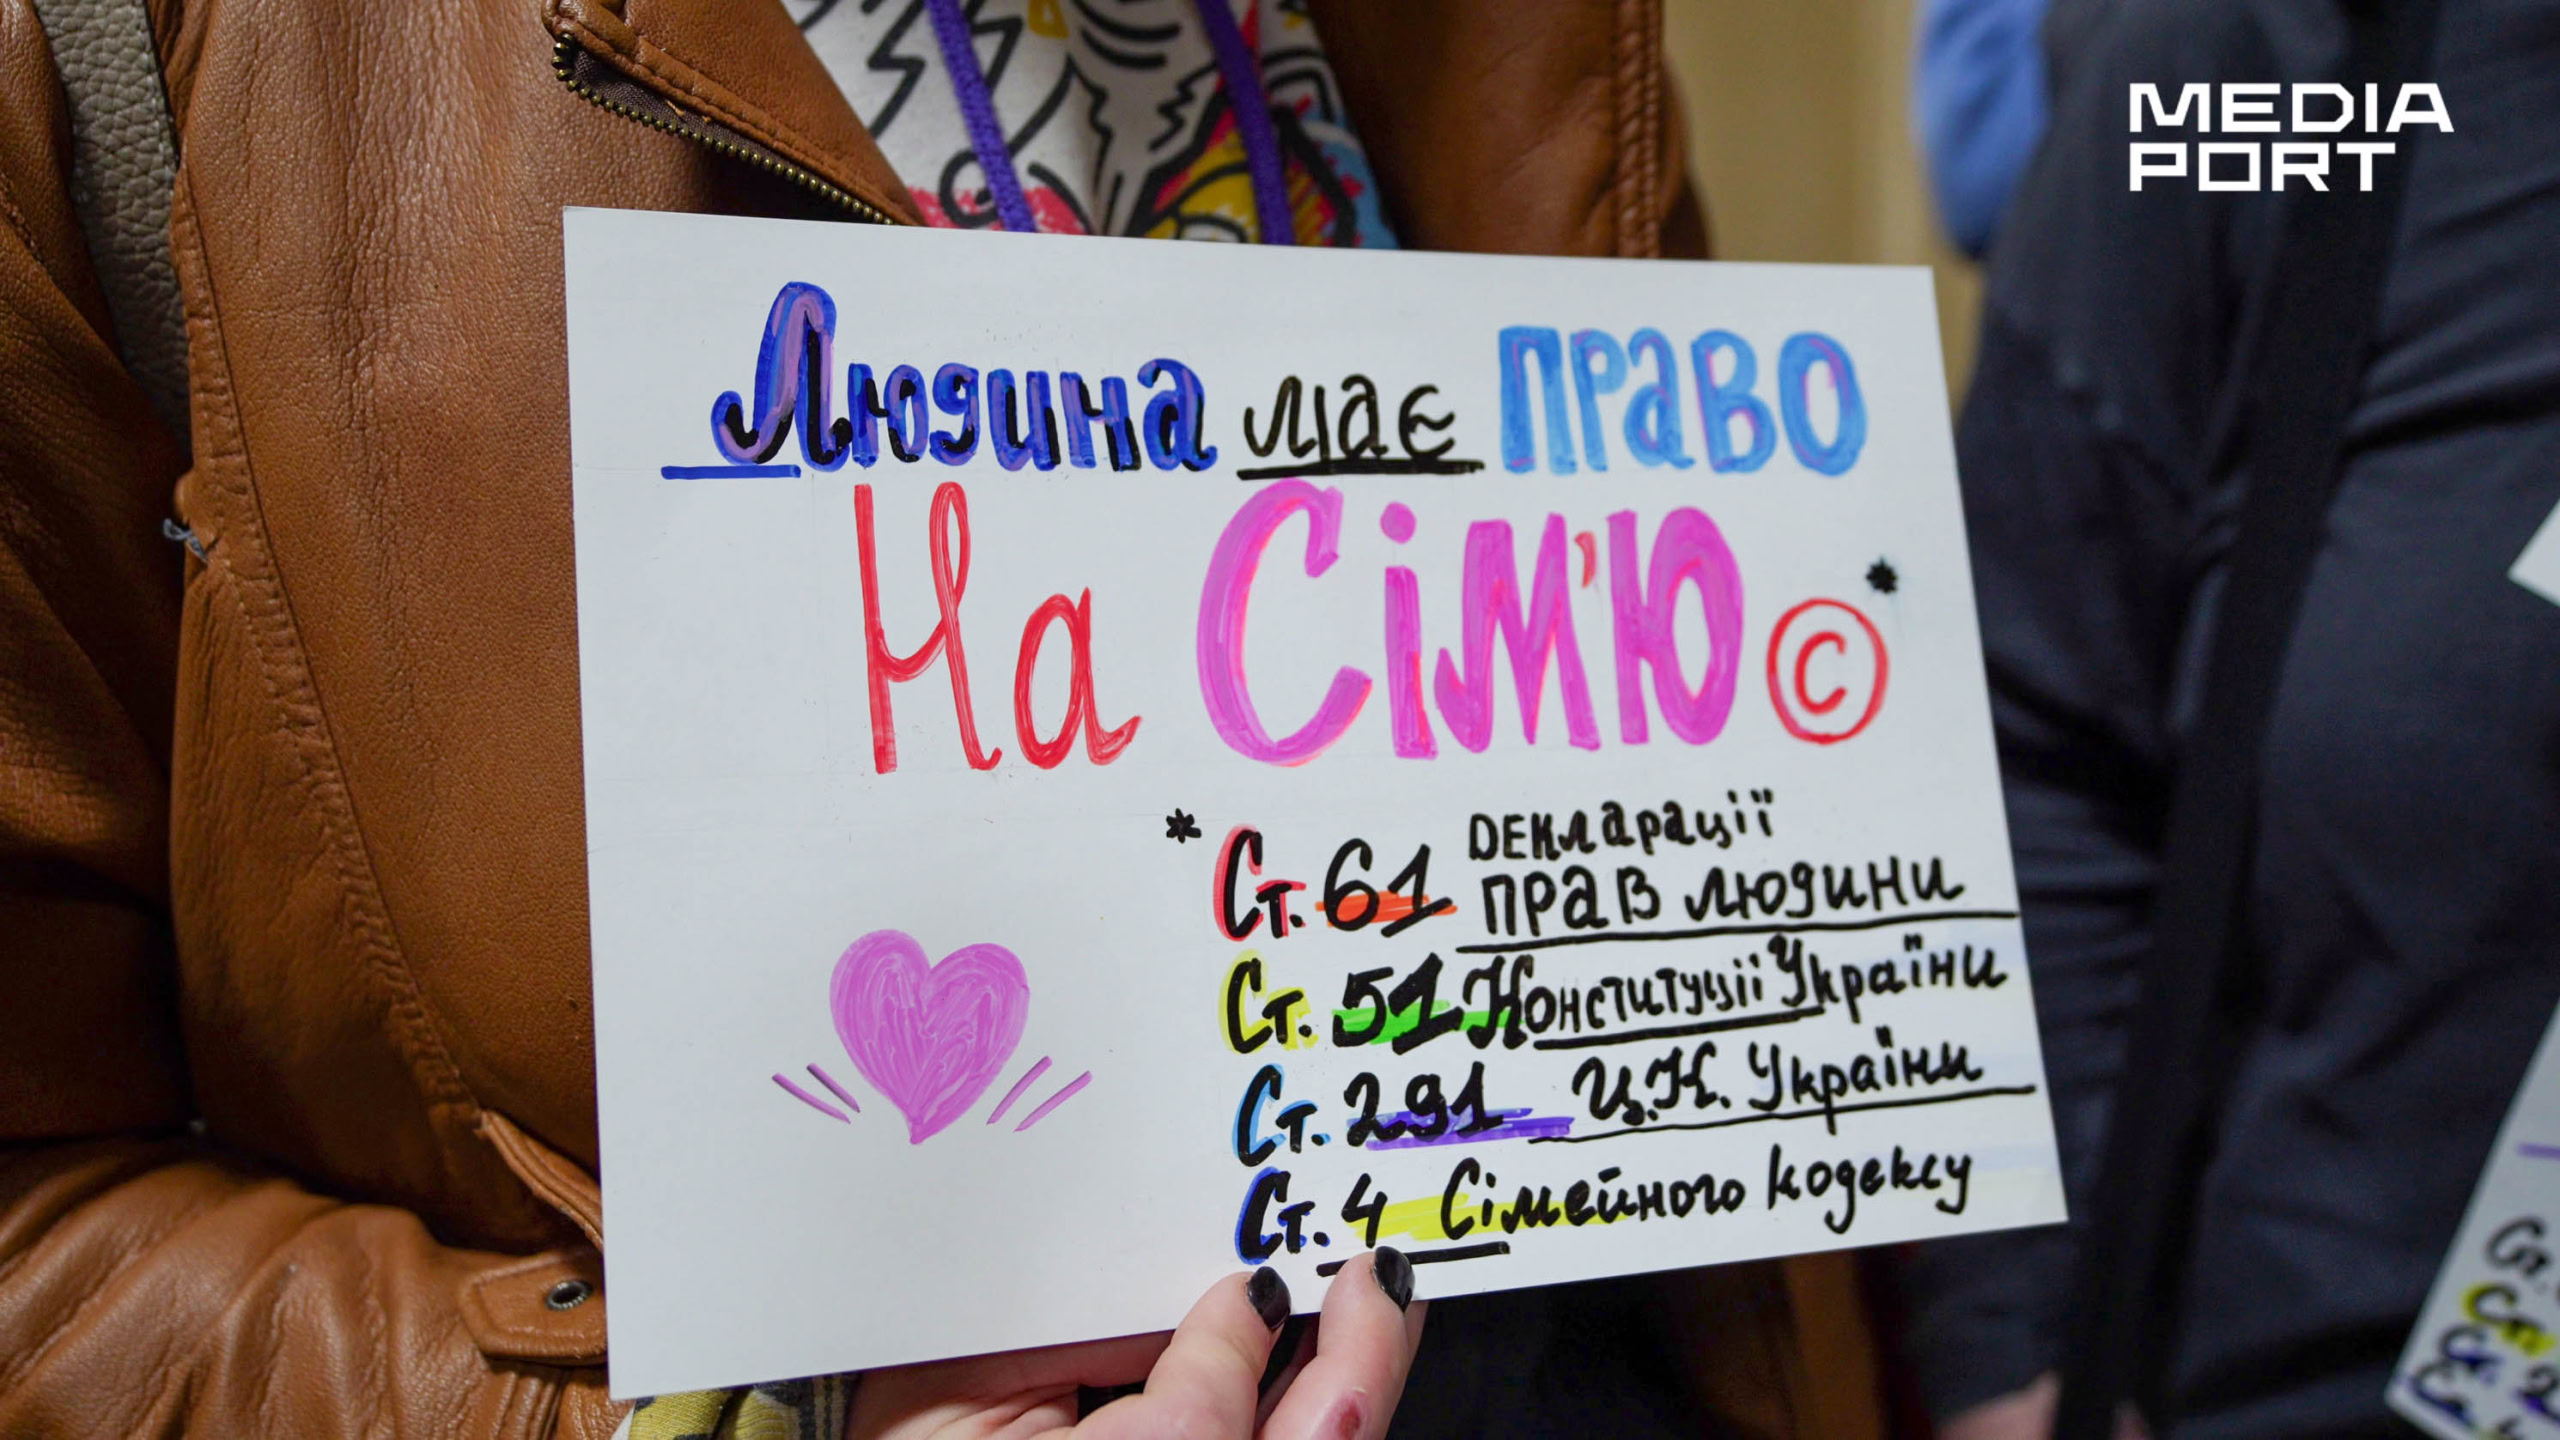 MEDIA
PORT
Людина має право
На Сім'ю ©*
* Ст. 61 Декларації
прав людини
Ст. 51 Конституції України
Ст. 291 Ц.К. України
Ст. 4 Сімейного кодексу